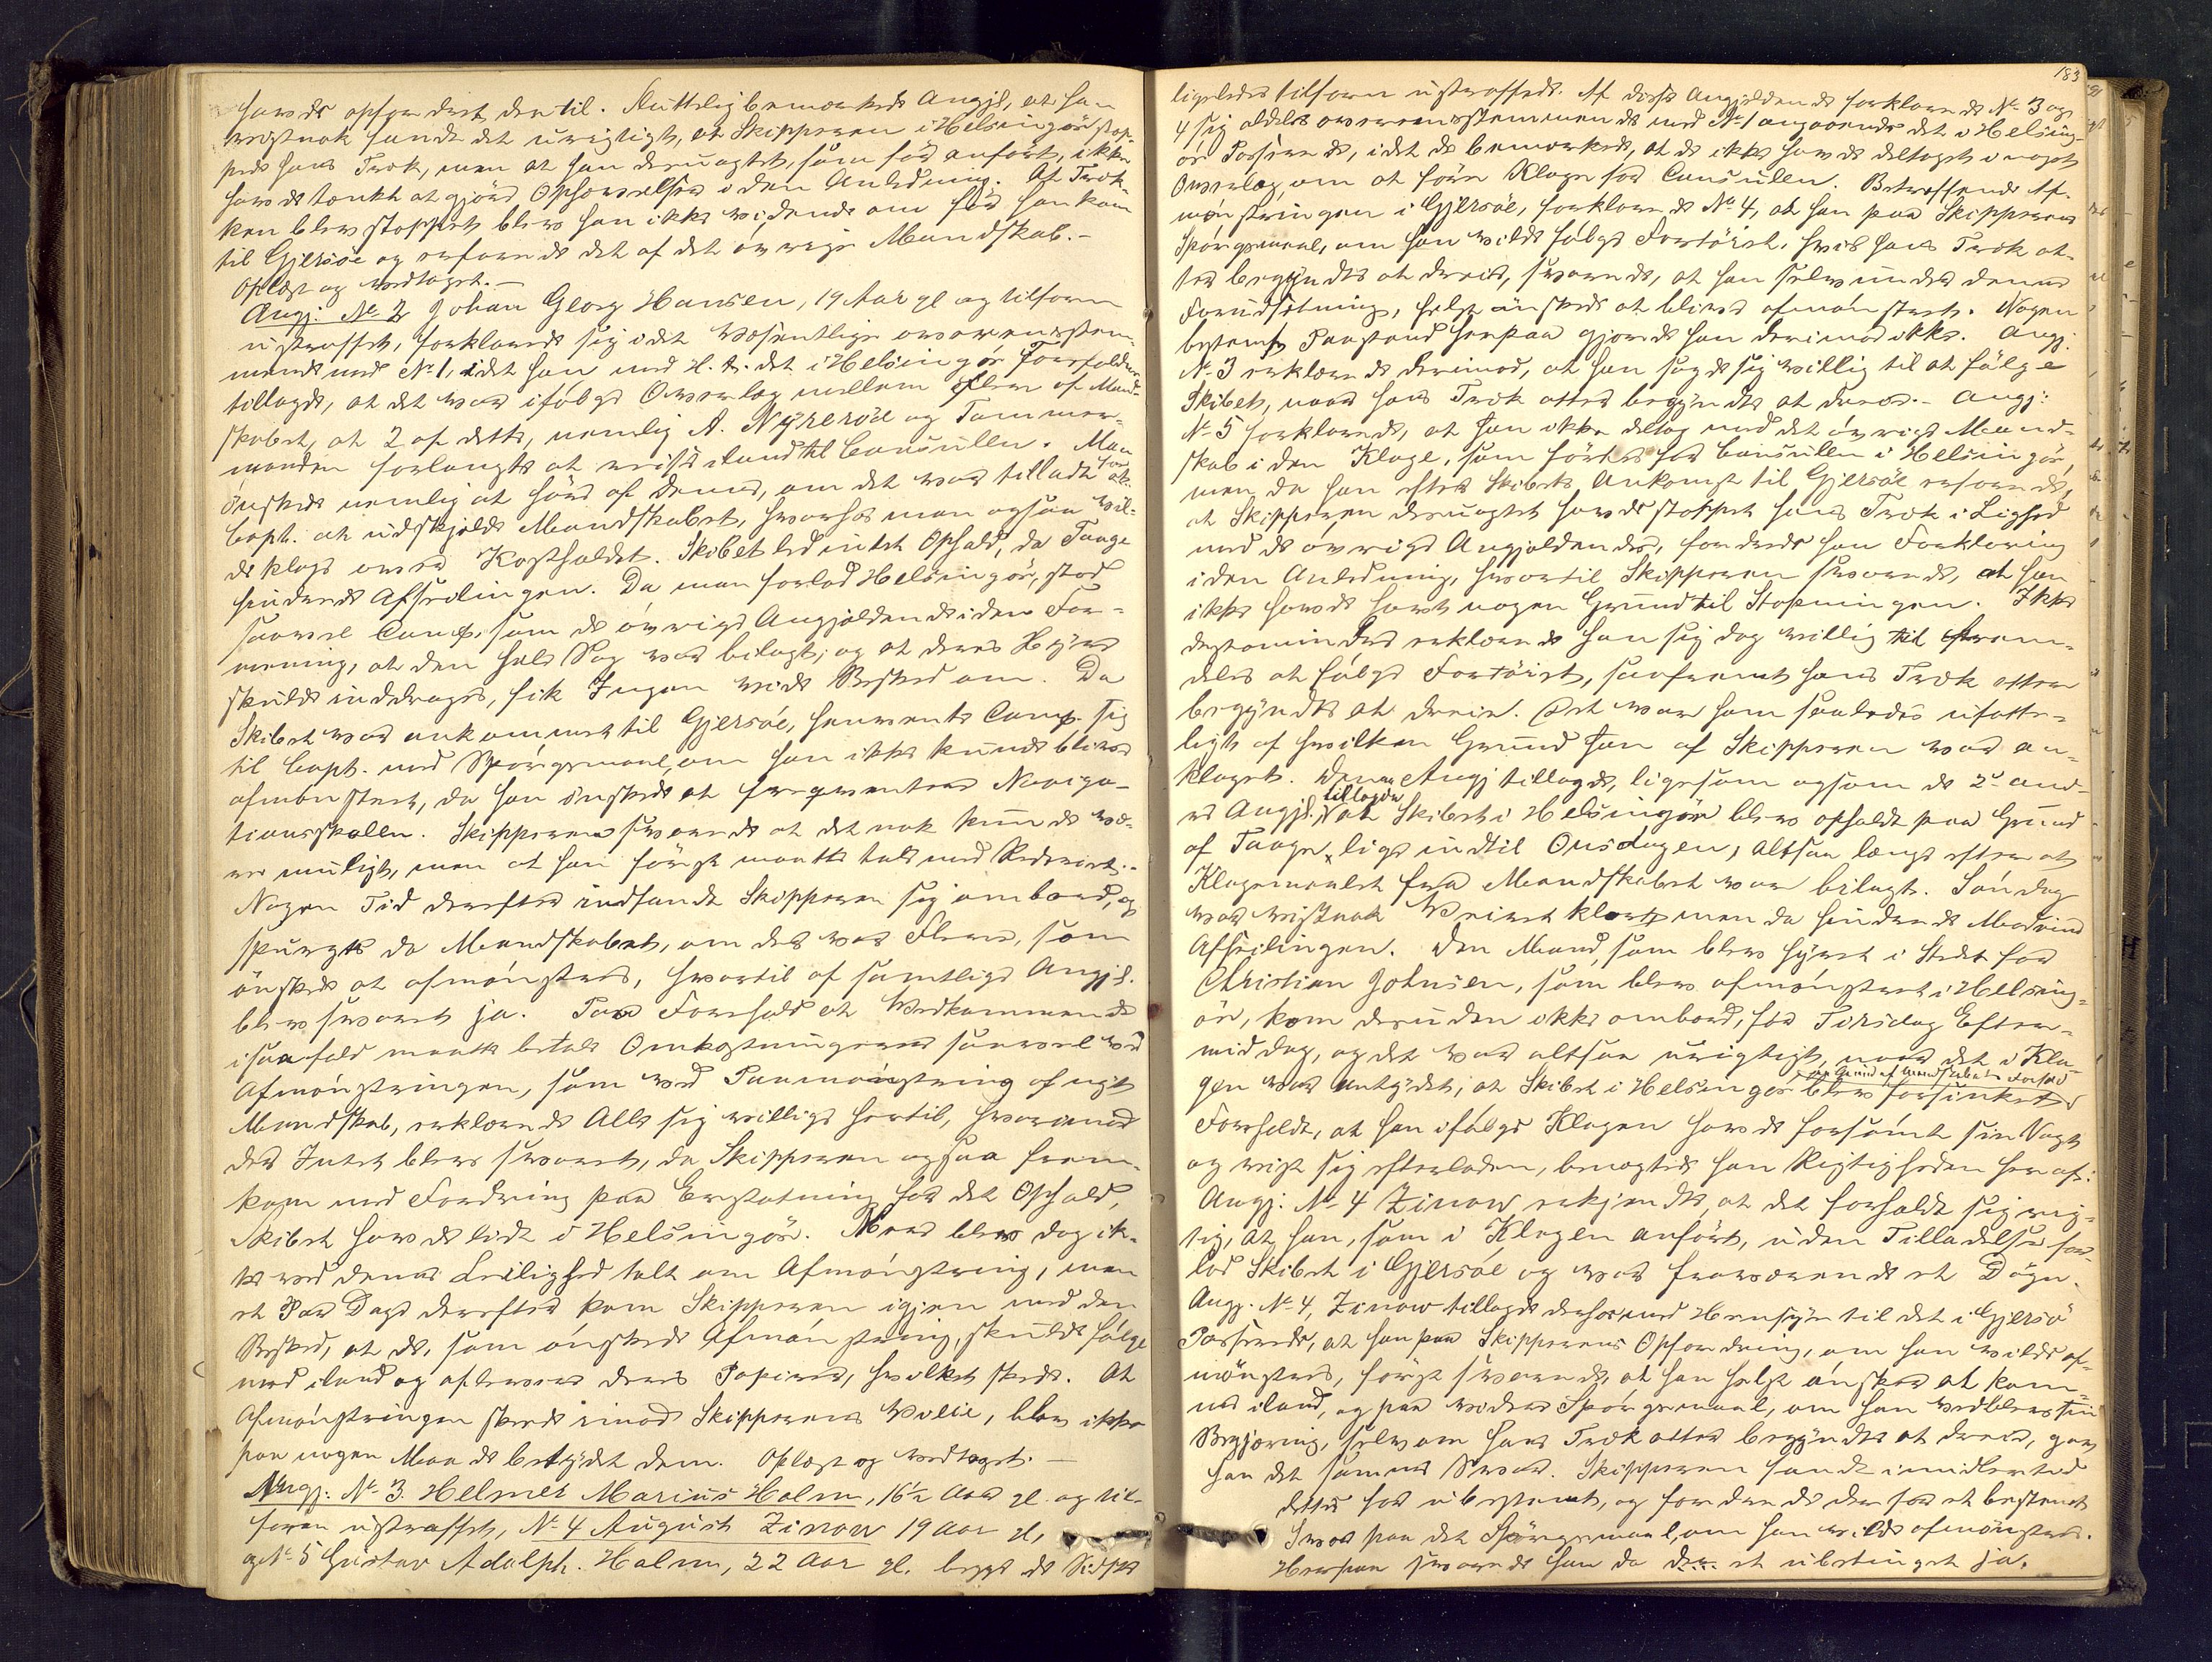 havde opfordret dertil. Slutteligbemærkede Angjl, at han
vistnok fandt det urigtigt, at Skipperen i Helsingör stop-
pede hans Træk, men at han desuagtet, som før anført, ikke
havde tænkt at gjöre Ophævelser i den Anledning. At Træk-
ken blev stoppet blev han ikke vidende om för han kom
til Gjersöe og erfarede det af det övrige Mandskab.-
Oplæst og vedtaget.-
Angj: No 2 Johan Georg Hansen, 19 Aar gl og tilforn
ustraffet, forklarede sig i det Væsentlige overensstem-
mende med No 1, idet han med H. t. det i Helsingör Forefaldne
tillagde, at det var ifölge Overlæg mellem flere af Mand-
skabet, at 2 af dette, nemlig A. Nyreröe og Tömmer-
manden forlangte at reise iland til Consulen. Man
önskede nemlig at höre af denne, om det var tilladt for
Capt. at udskjelde Mandskabet, hvorhos man ogsaa vil-
de klage over Kostholdet. Skibet led intet Ophold, da Taage
hindrede Afseilingen. Da man forlod Helsingör, stod
saavel Comp. som de övrige Angjældende i den For-
mening, at den hele Sag var bilagt; og at deres Hyre
skulde inddrages, fik Ingen vide Besked om. Da
Skibet var ankommet til Gjersöe, henvendte Comp. sig
til Capt. med Spörgsmaal, om han ikke kunde blive
afmönstret, da han önskede at frequentere Naviga-
tionsskolen. Skipperen svarede at det nok kunde væ-
re muligt, men at han förgst maatte tale med Rederiet.-
Nogen Tid derefter indfandt Skipperen sig ombord, og
spurgte da Mandskabet, om der var Flere, som
önskede at afmönstres, hvortil af samtlige Angjl.
blev svaret ja. Paa Forehold at Vedkommende
isaafald maatte betale Omkostningerne saavel ved
Afmönstringen, som ved Paamönstring af nyt
Mandskab, erklærede Alle sig villige hertil, hvorimod
der Intet blev svaret, da Skipperen ogsaa frem-
kom med Fordring paa Erstatning for det Ophold,
Skibet havde lidt i Helsingör. Mere blev dog ik-
ke ved denne Leilighed talt om Afmönstring, men
et Par Dage derefter kom Skipperen igjen med den
Besked, at de, som önskede Afmönstring, skulde fölge
med iland og aflevere deres Papirer, hvilket skede. At
Afmönstringen skede imod Skipperens Villie, blev ikke
paa nogen Maade betydet dem. Oplæst og vedtaget. -
Angj: No 3. Helmer Marius Holm, 16½ Aar gl. og til-
foren ustraffet, No 4 August Zinow 19 Aar gl,
og No 5 Gustav Adolph. Holm, 22 Aar gl. begge de Sidste
183
ligeledes tilforn ustraffede. Af disse Angjældende forklarede No 3 og
4 sig aldeles overensstemmende med No 1 angaaende det i Helsing-
ör Passerede, idet de bemærkede, at de ikke havde deltaget i noget
Overlæg om at före Klage for Consulen. Betræffende Af-
mönstringen i Gjersöe, forklarede No 4, at han paa Skipperens
Spörgsmaal, om han vilde fölge Fartöiet, hvis hans Træk at-
ter begyndte at dreie, svarede, at han selv under denne
Forudsætning, helst önskede at blive afmönstret. Nogen
bestemt Paastand herpaa gjorde han derimod ikke. Angj:
No 3 erklærede derimod, at han sagde sig villig til at fölge
Skibet, naar hans Træk atter begyndte at dreie.- Angj:
No 5 forklarede, at han ikke deltog med det övrige Mand-
skab i den Klage, som förtes for Consulen i Helsingör,
men da han efter Skibets Ankomst til Gjersöe erfarede,
at Skipperen desuagtet havde stoppet hans Træk i Lighed
med de övrige Angjældendes, fordrede han Forklaring
i den Anledning, hvortil Skipperen svarede, at han
ikke havde havt nogen Grund til Stopningen. Ikke
destomindre erklærede han sig dog villig til frem-
deles at fölge Fartöiet, saafremt hans Træk atter
begyndte at dreie. Det var ham saaledes ufatte-
ligt af hvilken Grund han af Skipperen var an-
klaget. Denne Angj tillagde, ligesom ogsaa de 2de and-
re Angjl. tillagde at Skibet i Helsingör blev opholdt paa Grund
af Taage, lige indtil Onsdagen, altsaa længe efter at
Klagemaalet fra Mandskabet var bilagt. Söndag
var vistnok Veiret klart, men da hindrede Modvind
Afseilingen. Den Mand, som blev hyret i Stedet for
Christian Johnsen, som blev afmönstret i Helsing-
ör, kom desuden ikke ombord, för Tirsdag Efter-
middag, og det var altsaa urigtigt, naar det i Kla-
gen var antydet, at Skibet i Helsingör paa Grund af Mandskabets Forhold blev forsinket
Foreholdt, at han ifölge Klagen havde forsömt sin Vagt
og viist sig efterladen, benægtede han Rigtigheden heraf:
Angj: No 4 Zinow erkjendte, at det forholdt sig rig-
tig, at han, som i Klagen anfört, uden Tilladelse for-
lod Skibet i Gjersöe og var fraværende et Dögn.
Angj. No 4, Zinow tillagde derhos med Hensyn til det i Gjersö
Passerede, at han paa Skipperens Opfordring, om han vilde af-
mönstres, först svarede, at han helst önsker at kom-
me iland, og paa videre Spörgsmaal, om han vedblev sin
Begjæring, selv om hans Træk atter begyndte at dreie, gav
han det samme Svar. Skipperen fandt imidlertid
dette for ubestemt, og fordrede derfor et bestemt
Svar paa det Spörgsmaal, om han vilde afmönstres.
Herpaa svarede han da et ubetinget ja.